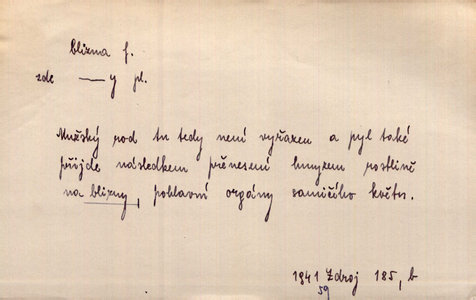 blizna f.
zde —— y pl.
Mužský rod tu tedy není vyřazen a pyl také
přijde následkem přenesení hmyzem rostlině
na blizny, pohlavní orgány samičího květu.
1941 Zdroj 185, b
59